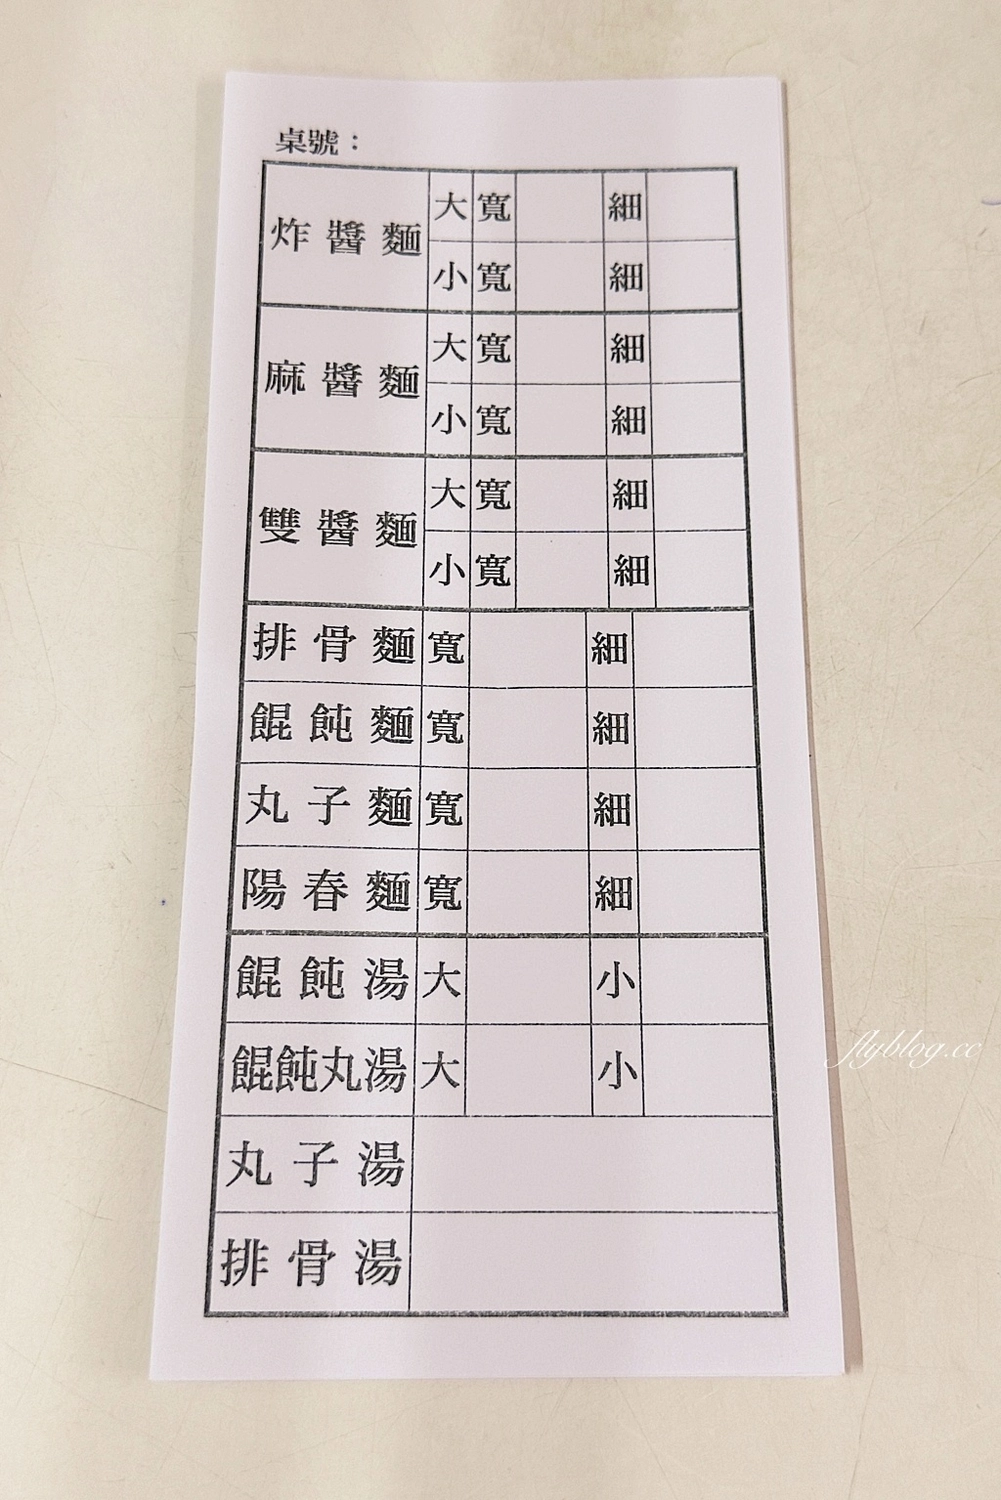 桌號：
炸醬麵 大 寬 細
小 寬 細
麻醬麵 大 寬 細
小 寬 細
雙醬麵 大 寬 細
小 寬 細
排骨麵 寬 細
餛飩麵 寬 細
丸子麵 寬 細
陽春麵 寬 細
餛飩湯 大 小
餛飩丸湯 大 小
丸子湯
排骨湯
flyblog.cc